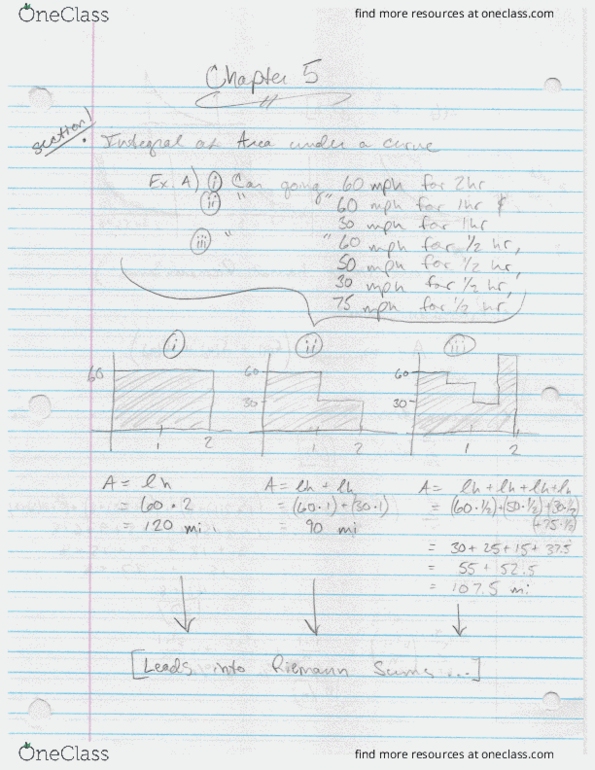 OneClass find more resources at oneclass.com
Chapter 5
Section 1
Integral as Area under a curve
Ex. A) i Car going 60 mph for 2hr
ii " " 60 mph for 1hr &
30 mph for 1hr
iii " " 60 mph for 1/2 hr,
50 mph for 1/2 hr,
30 mph for 1/2 hr,
75 mph for 1/2 hr
i ii iii
60 60 60
30 30
1 2 1 2 1 2
A = lh A = lh + lh A = lh + lh + lh + lh
= 60 · 2 = (60·1) + (30·1) = (60·1/2)+(50·1/2)+(30·1/2)
= 120 mi = 90 mi (+75·1/2)
= 30 + 25 + 15 + 37.5
= 55 + 52.5
= 107.5 mi
[Leads into Riemann Sums ...]
OneClass find more resources at oneclass.com